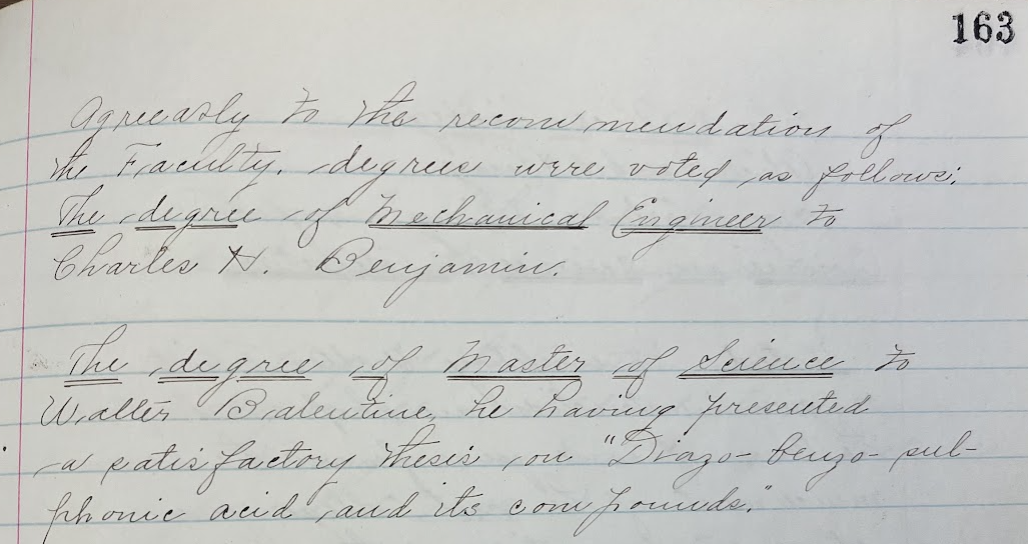 163
Agreeably to the recommendation of
the Faculty, degrees were voted as follows:
The degree of Mechanical Engineer to
Charles H. Benjamin.
The degree of Master of Science to
Walter Balentine, he having presented
a satisfactory thesis on "Diazo-benzo-sul-
phonic acid and its compounds."